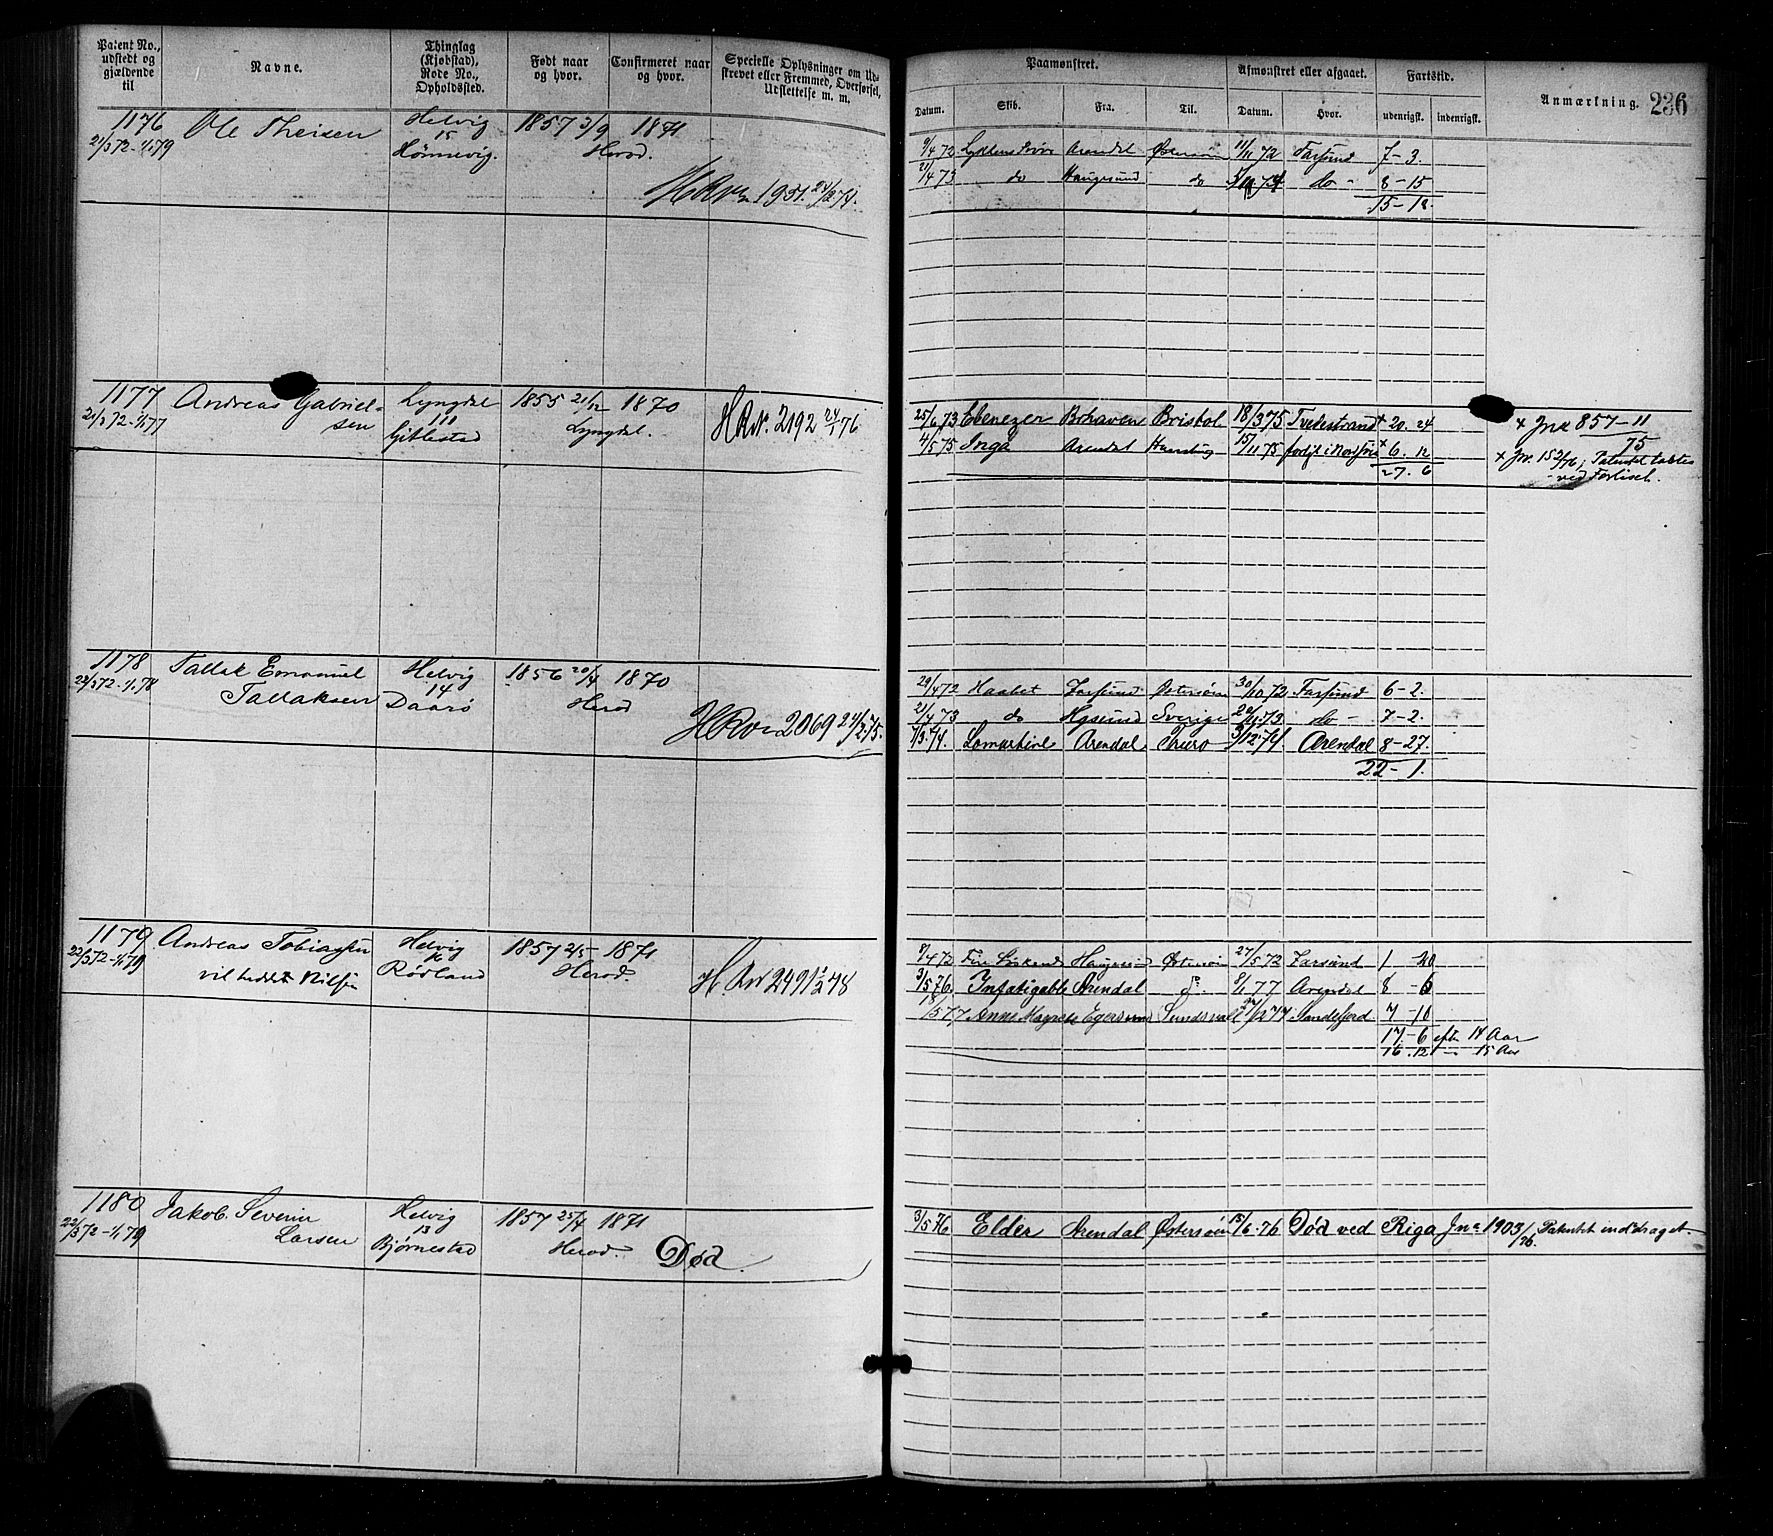 Patent No., udstedt og gjældende til
Navne.
Thinglag (Kjøbstad), Rode No., Opholdssted.
Født naar og hvor.
Confirmeret naar og hvor.
Specielle Oplysninger om Udskrevet eller Fremmed, Overførsel, Udslettelse m. m.
Paamønstret.
Datum. Skib. Fra. Til.
Afmønstret eller afgaaet.
Datum. Hvor.
Fartstid.
udenrigsk. indenrigsk.
Anmærkning.
236
1176 Ole Theisen Helvig 1857 3/9 1871
21/3 72-1/1 79 15 Herod.
Hønnevig.
1951.
9/4 72 Arendal Østersøen 11/11 72 Farsund 7-3.
21/4 73 do Haugesund do do - 8-15
15-18
1177 Andreas Gabriel- Lyngdal 1855 21/12 1870
21/3 72-1/1 77 sen 111 Lyngdal.
Gitlestad
HRv. 2192 24/1 76
25/6 73 Ebenezer Brhaven Bristol 18/3 75 Tvedestrand + 20. 24
4/5 75 Inga Arendal 15/11 75 forlist i + 6. 12
27. 6
+ Jn 857-11
75
+ Jn. 15 Patentet tabtes
ved Forliset.
1178 Tallak Emanuel Helvig 1856 20/4 1870
22/3 72-1/1 78 Tallaksen 14 Herod
Daarø
2069
29/4 72 Haabet Farsund Østersøen 30/10 72 Farsund 6-2.
21/4 73 do Sverige do - 7-2.
Lamartine Arendal Truro Arendal 8-27.
22-1.
1179 Andreas Tobiassen Helvig 1857 2/5 1871
22/3 72-1/1 79 vil hedde Nilsen Herod.
Rødland
H. Rv 2491
8/4 73 Østersøen 27/5 72 Farsund 1 20
3/5 76 Infatigable Arendal do. 8/1 77 Arendal 8 -6
18/5 77 Anne Margrete Egersund Sundsvall Sandefjord 7 -10
17-6 efter 14 Aar
16.12 - 15 Aar
1180 Jakob Severin Helvig 1857 25/4 1871
22/3 72-1/1 79 Larsen 13 Herod.
Bjørnestad
Død.
3/5 76 Elder Arendal Østersøen 15/6-76 Død ved Riga Jn 1903/76. Patentet inddraget.